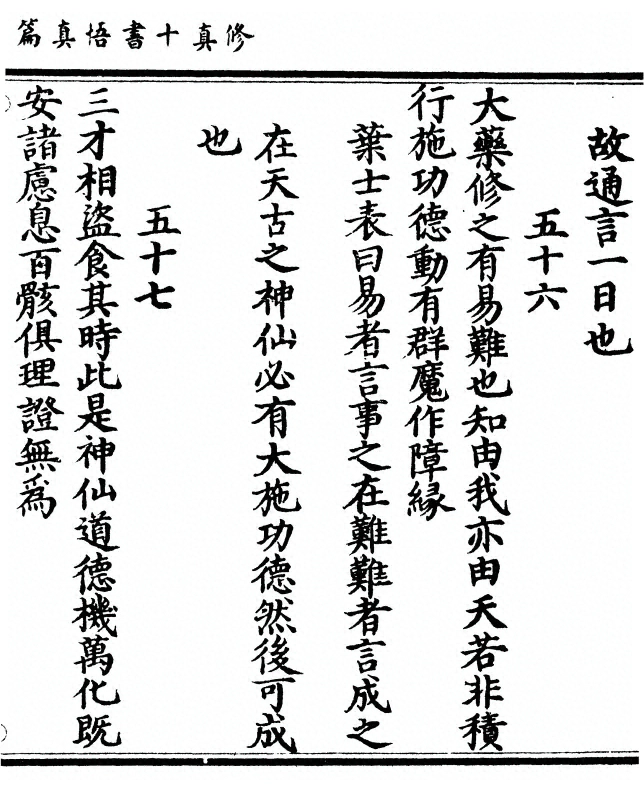 修真十書悟真篇
故通言一日也
五十六
大藥修之有易難也知由我亦由天若非積
行施功德動有群魔作障緣
葉士表曰易者言事之在難難者言成之
在天古之神仙必有大施功德然後可成
也
五十七
三才相盜食其時此是神仙道德機萬化既
安諸慮息百骸俱理證無為